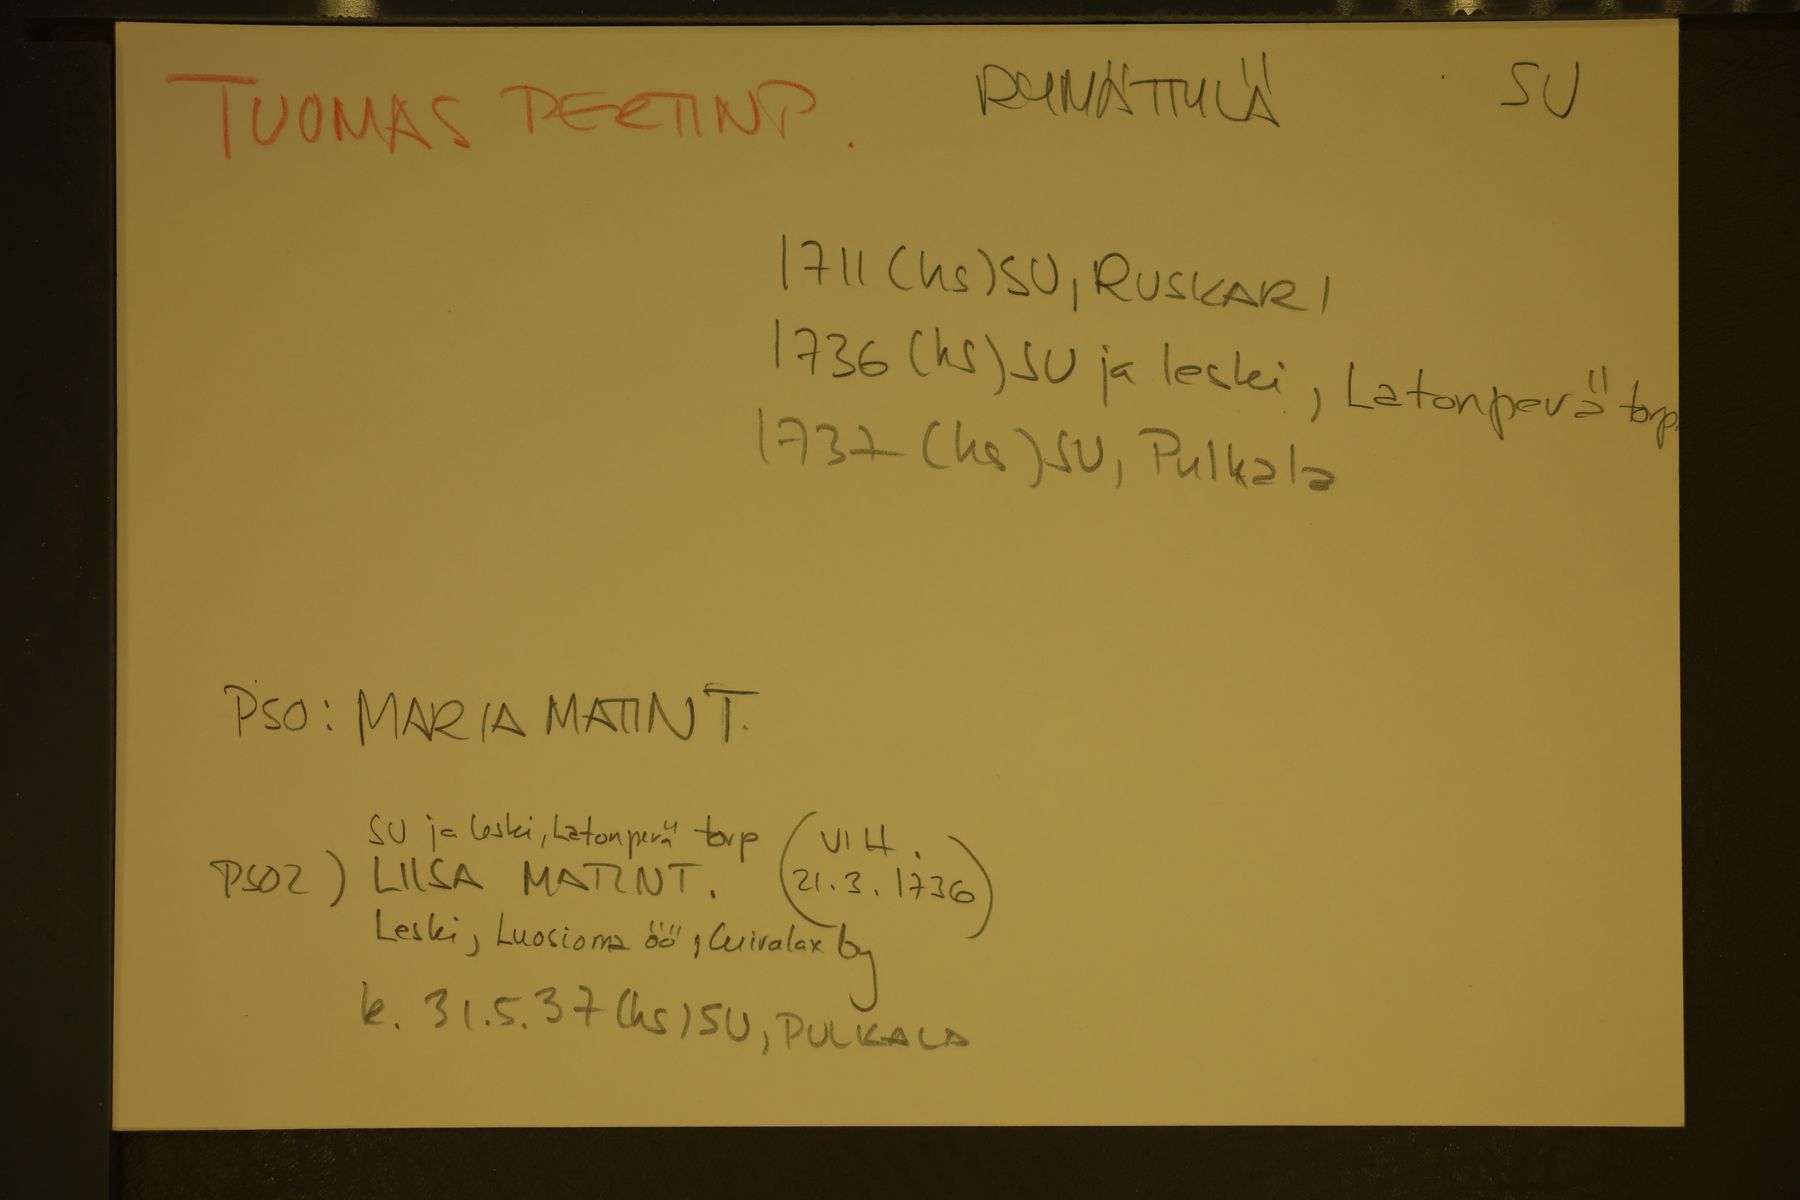 TUOMAS PERTINP. RYMÄTTYLÄ SU
1711 (hs) SU, RUSKARI
1736 (hs) SU ja leski, Latonperä torp.
1737 (hs) SU, Pulkala
PSO: MARIA MATINT.
SU ja leski, Latonperä torp
PSO2) LIISA MATINT. (VIH. 21.3.1736)
Leski, Luosioma öö, Cuivalax by
k. 31.5.37 (hs) SU, PULKALA